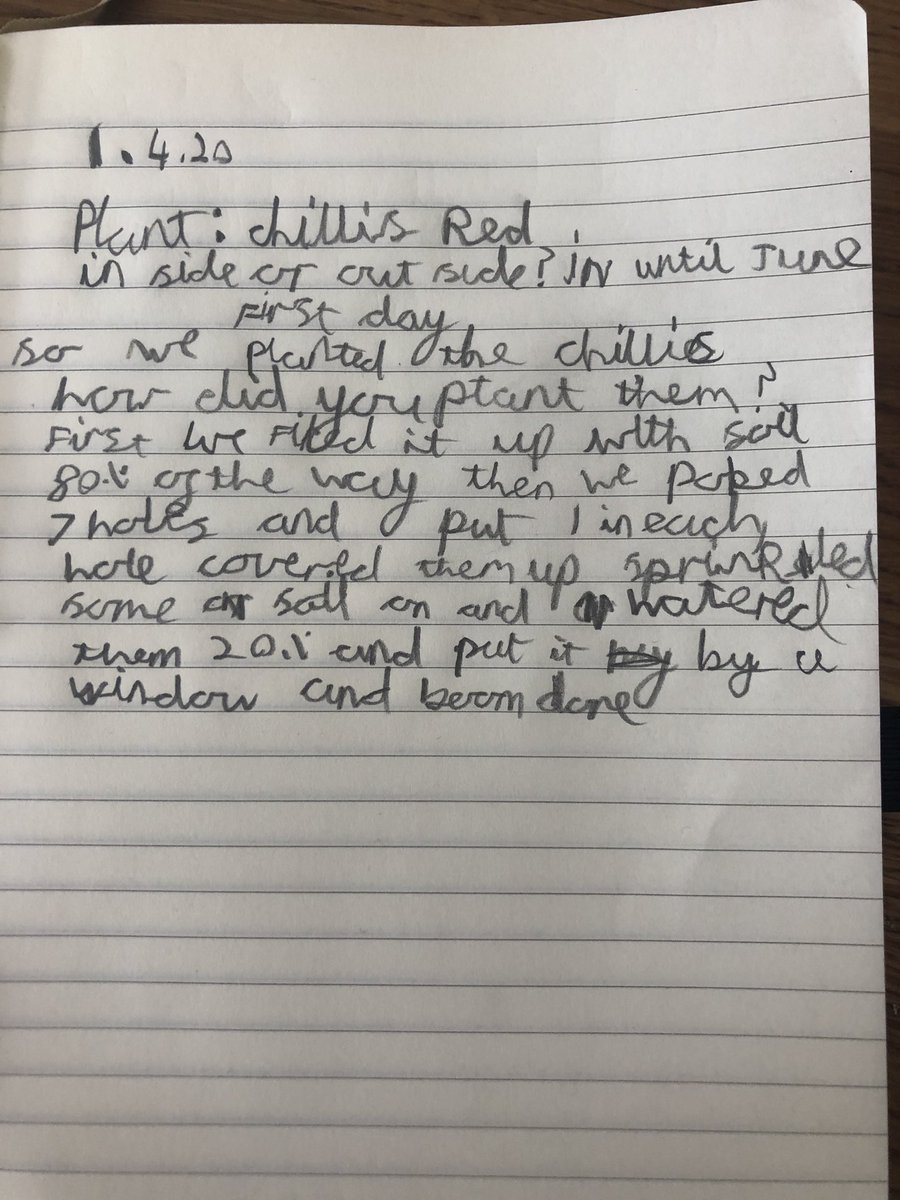 1.4.20
Plant: chillis Red
in side or out side? IN until June
First day
so we planted the chillies
how did you plant them?
First we Filled it up with soil
80% of the way then we poped
7 holes and put 1 in each
hole covered them up sprinkled
some soil on and watered
them 20% and put it by a
window and boom done